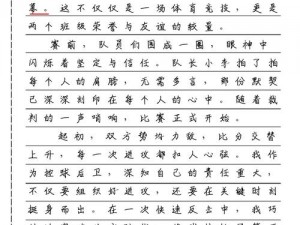 幕。这不仅仅是一场体育竞技，更是
两个班级荣誉与友谊的较量。
赛前，队员们围成一圈，眼神中
闪烁着坚定与信任。队长小李拍了拍
每个人的肩膀，无需多言，那份默契
已深深刻印在每个人的心中。随着裁
判的一声哨响，比赛正式开始。
起初，双方势均力敌，比分交替
上升，每一次进攻都扣人心弦。我作
为控球后卫，深知自己的责任重大，
不仅要组织好进攻，还要在关键时刻
挺身而出。在一次快速反击中，我巧